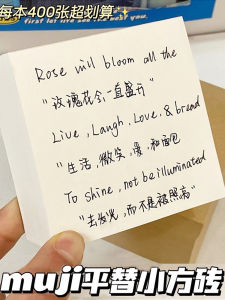 first let 200 see
每本400张超划算✨
Rose will bloom all the
"玫瑰花会一直盛开"
Live, Laugh, Love, & bread
"生活，微笑，爱，和面包
To shine, not be illuminated
"去发光，而不是被照亮"
muji平替小方砖